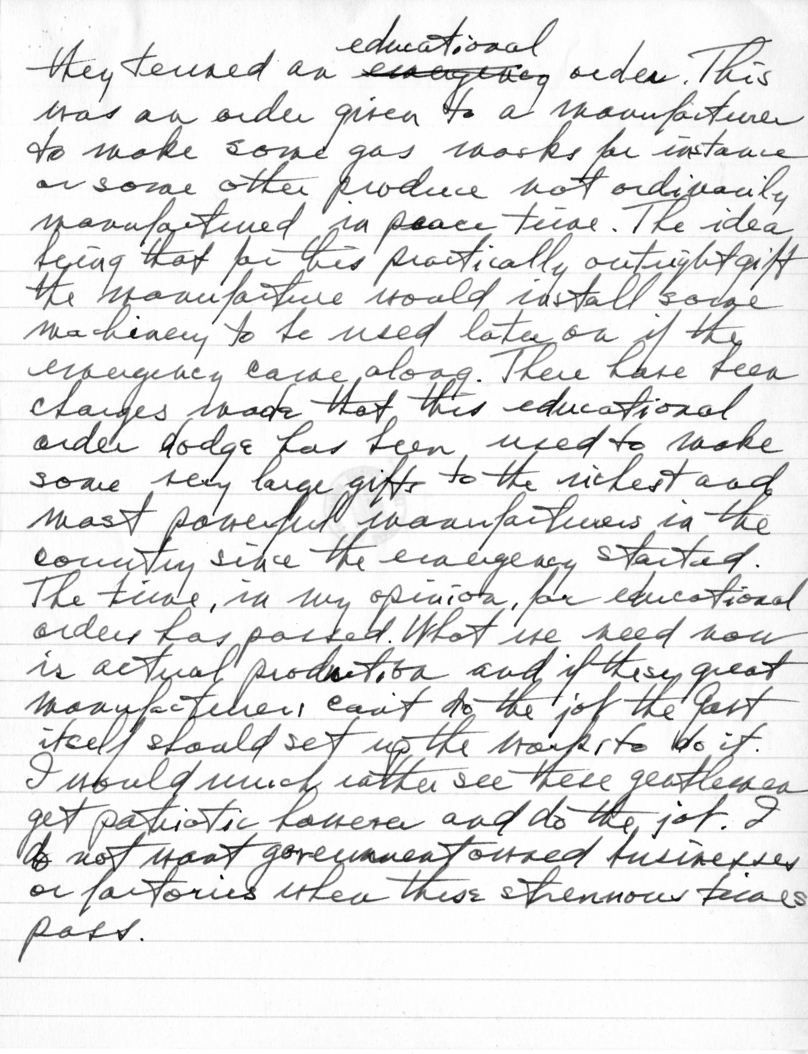 educational
they termed an emergency order. This
was an order given to a manufacturer
to make some gas masks for instance
or some other produce not ordinarily
manufactured in peace time. The idea
being that for this practically outright gift
the manufacture would install some
machinery to be used later on if the
emergency came along. There have been
charges made that this educational
order dodge has been used to make
some very large gifts to the richest and
most powerful manufacturers in the
country since the emergency started.
The time, in my opinion, for educational
orders has passed. What we need now
is actual production and if these great
manufacturers can't do the job the Govt
itself should set up the works to do it.
I would much rather see these gentlemen
get patriotic however and do the job. I
do not want government owned businesses
or factories when these strennous times
pass.